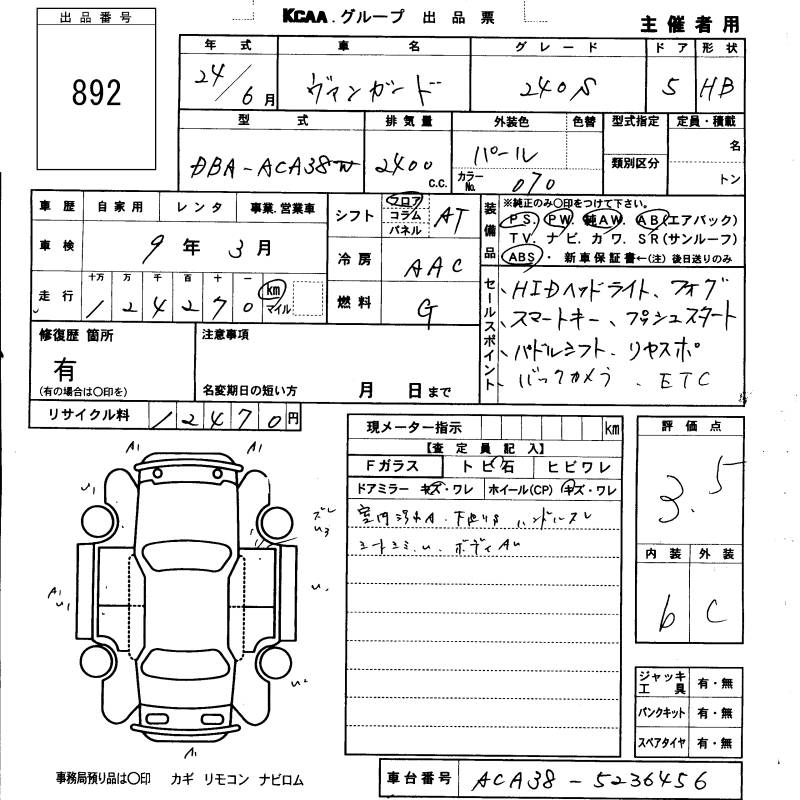 出品番号
892
KCAA.グループ 出品票
主催者用
年式 車名 グレード ドア 形状
24/6月 ヴァンガード 240S 5 HB
型式 排気量 外装色 色替 型式指定 定員・積載
DBA-ACA38W 2400 C.C. パール 名
カラーNo. 070 類別区分 トン
車歴 自家用 レンタ 事業.営業車
シフト フロア コラム パネル AT
装備品 ※純正のみ〇印をつけて下さい。
PS. PW. 純AW. AB(エアバック)
TV. ナビ. カワ. SR(サンルーフ)
ABS・ 新車保証書←(注)後日送りのみ
車検 9年3月
冷房 AAC
走行 十万 万 千 百 十 一 km マイル
124270
燃料 G
セールスポイント
、HIDヘッドライト、フォグ
、スマートキー、プッシュスタート
、パドルシフト.リヤスポ
、バックカメラ. ETC
修復歴 箇所
有
(有の場合は〇印を)
注意事項
名変期日の短い方 月 日まで
リサイクル料 12470円
現メーター指示 km
【査定員記入】
Fガラス トビ石 ヒビワレ
ドアミラー キズ・ワレ ホイール(CP) キズ・ワレ
シートシミ.U. ボディAU
評価点
3.5
内装 外装
b C
A1 A1
U1
ズレ
U3
A1
U1
U.
U2
A1
ジャッキ工具 有・無
パンクキット 有・無
スペアタイヤ 有・無
事務局預り品は〇印 カギ リモコン ナビロム
車台番号 ACA38-5236456